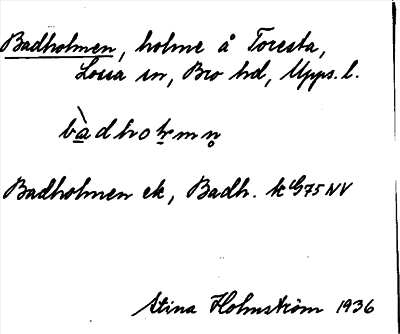 Badholmen, holme å Toresta,
Lossa sn, Bro hd, Upps. l.
bàdhol̥mn̥
Badholmen ek, Badh. k G75 NV
Stina Holmström 1936